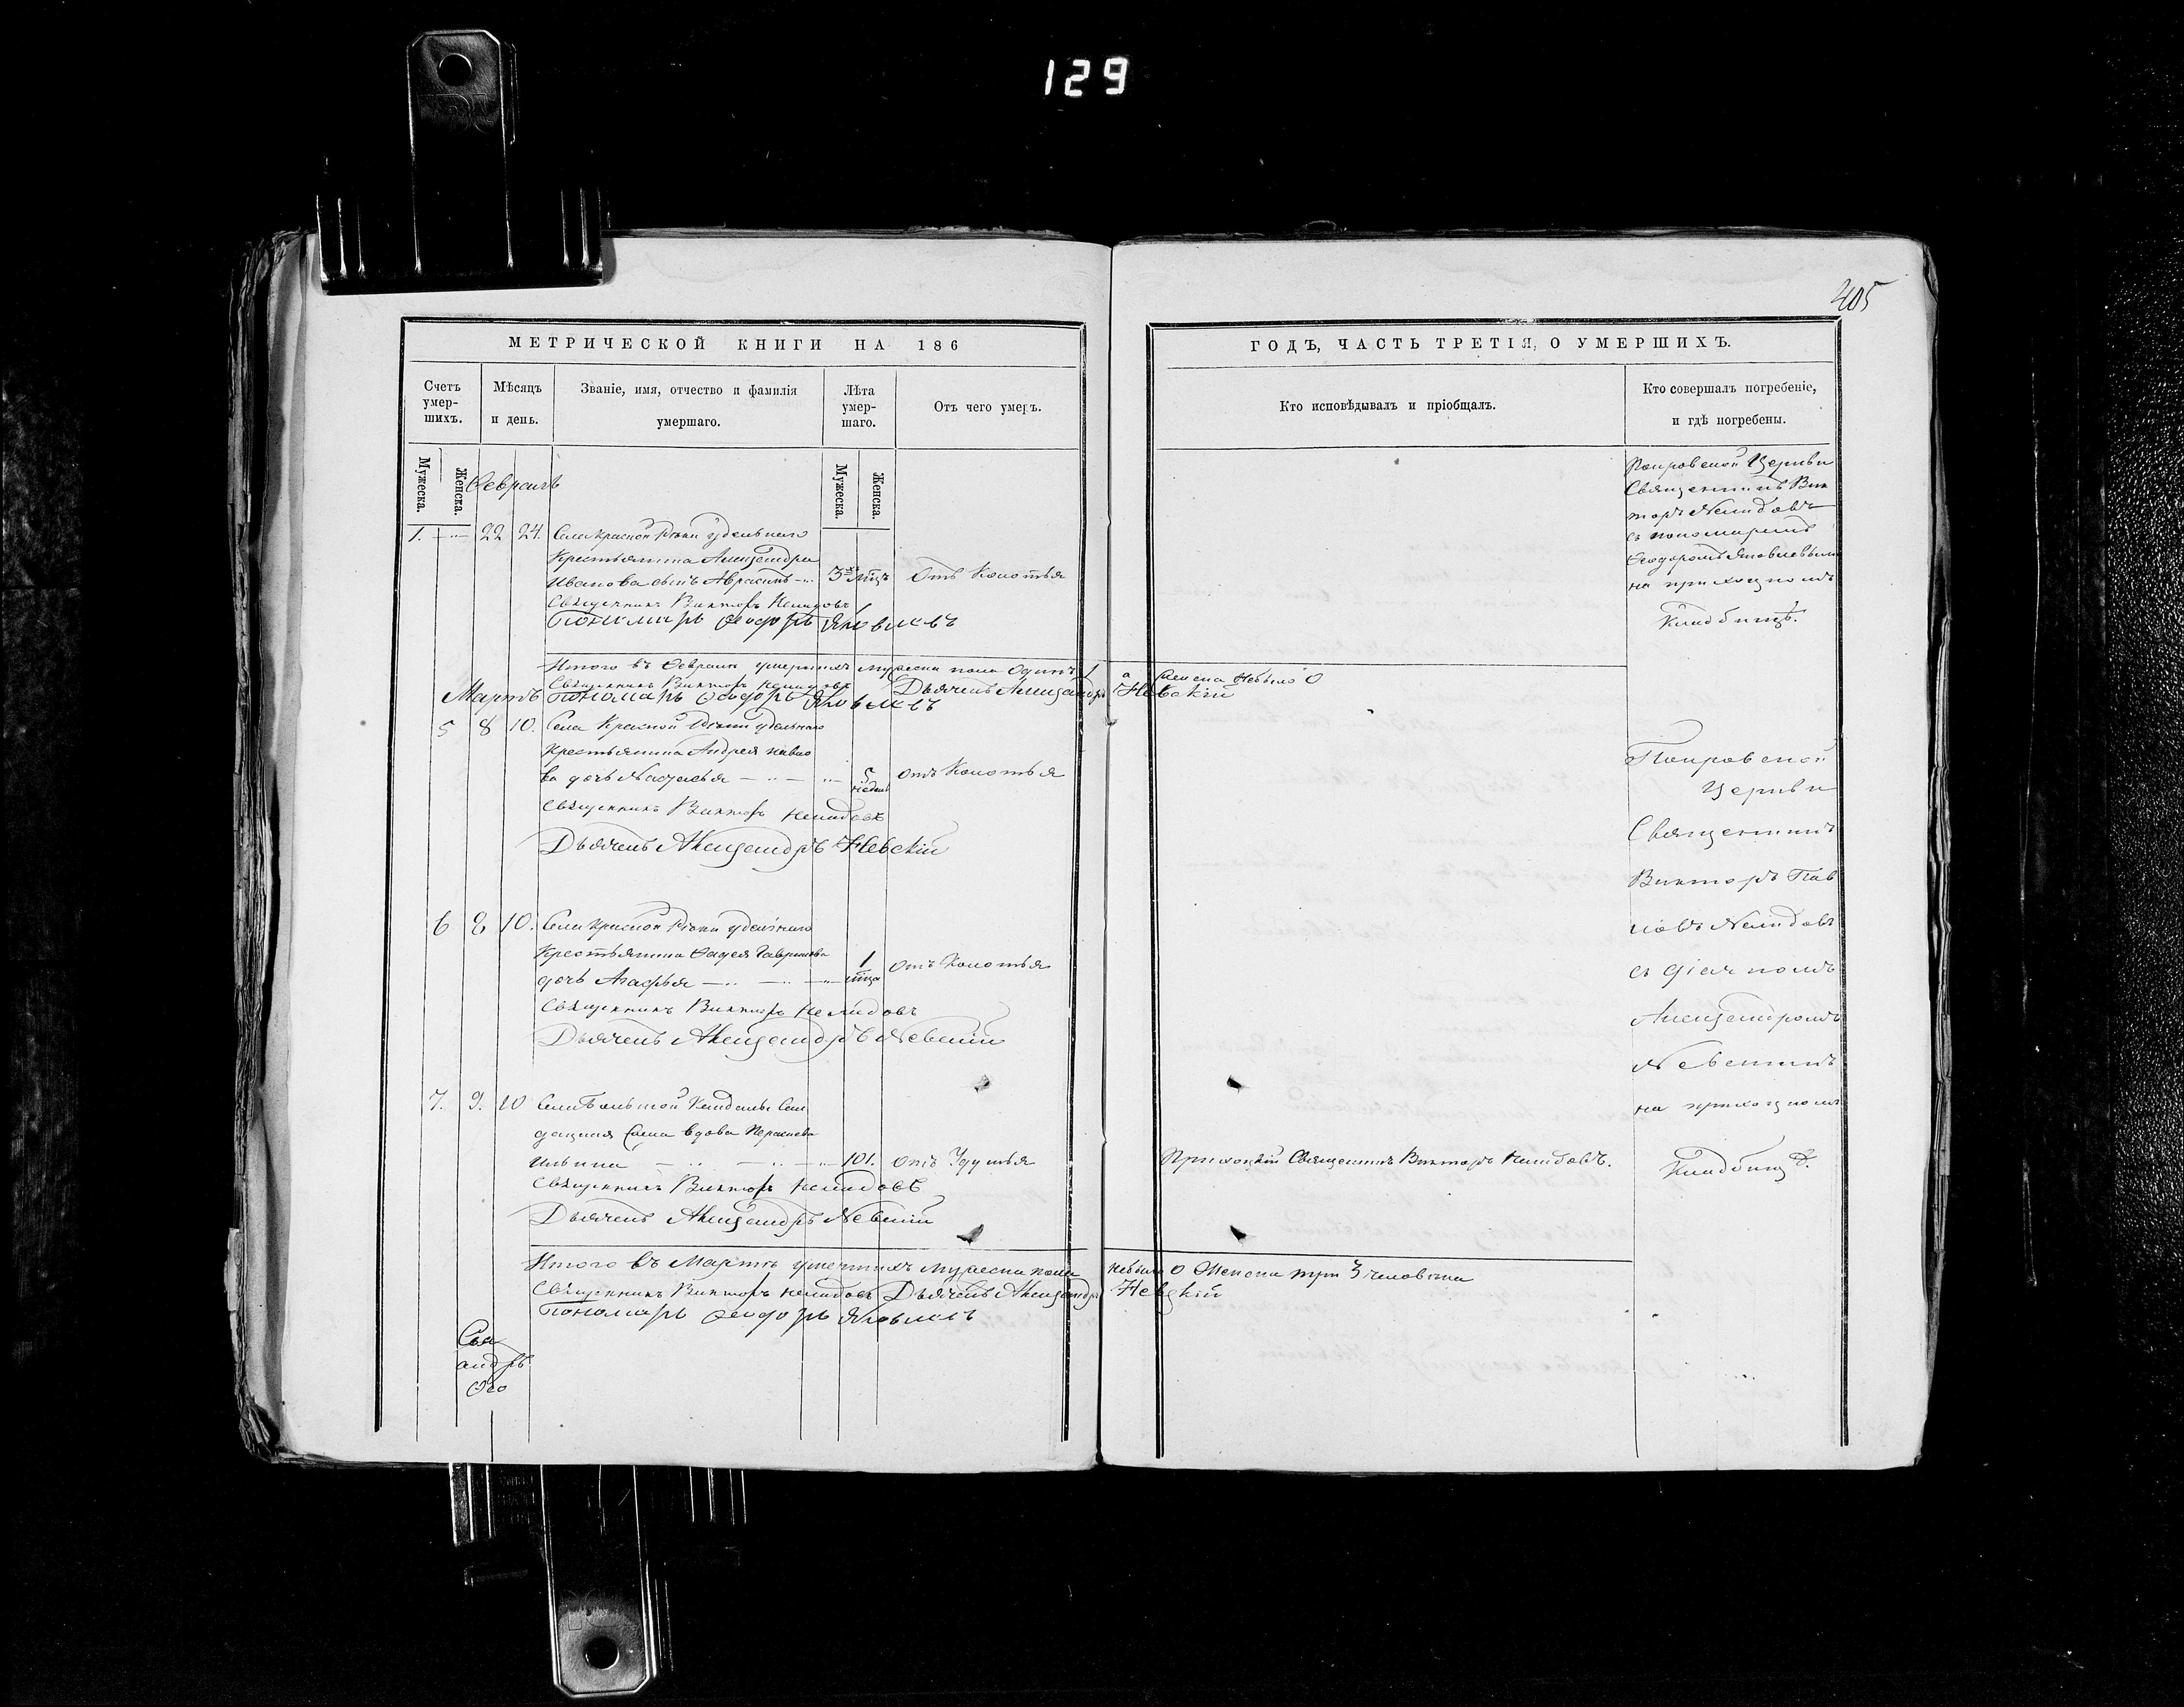 129
405
МЕТРИЧЕСКОЙ КНИГИ НА 186
Счетъ умер-шихъ.
Мѣсяцъ и день.
Званіе, имя, отчество и фамилія умершаго.
Лѣта умер-шаго.
Отъ чего умеръ.
Мужеска.
Женска.
Мужеска.
Женска.
Февраль
1. 22 24. Села Красной Рѣки удѣльнаго
Крестьянина Александра
Иванова сынъ Авраамъ 3хъ лѣтъ Отъ Колотья
Священникъ Викторъ Нелидовъ
Пономарь Ѳеодоръ Яковлевъ
Итого въ Февралѣ умершихъ мужеска пола Одинъ 1 а женска небыло 0
Священникъ Викторъ Нелидовъ Дьячекъ Александръ Невскій
Мартъ Пономарь Ѳеодоръ Яковлевъ
5 8 10. Села Красной Рѣки удѣльнаго
Крестьянина Андрея Павло
ва дочь Настасья 5 недѣль отъ Колотья
Священникъ Викторъ Нелидовъ
Дьячекъ Александръ Невскій
6 8 10. Села Красной Рѣки удѣльнаго
Крестьянина Фадея Гаврилова
дочь Агафья 1 отъ Колотья
Священникъ Викторъ Нелидовъ
Дьячекъ Александръ Невскій
7. 9. 10 Села Большой Кандалы Сол
датская вдова
Ильина 101. отъ Удушья
Священникъ Викторъ Нелидовъ
Дьячекъ Александръ Невскій
Итого въ Мартѣ умершихъ мужеска пола небыло 0 Женска три 3 человѣка
Священникъ Викторъ Нелидовъ Дьячекъ Александръ Невскій
Пономарь Ѳеодоръ Яковлевъ
Свя
андръ
Ѳео
ГОДЪ, ЧАСТЬ ТРЕТІЯ, О УМЕРШИХЪ.
Кто исповѣдывалъ и пріобщалъ.
Кто совершалъ погребеніе,
и гдѣ погребены.
Покровской Церкви
Священникъ Вик
торъ Нелидовъ
съ пономаремъ
Ѳеодоромъ Яковлевымъ
на приходскомъ
Кладбищѣ.
Покровской
Церкви
Священникъ
Викторъ Пав
ловъ Нелидовъ
съ діачкомъ
Александромъ
Невскимъ
на приходскомъ
Кладбищѣ.
Приходскій Священникъ Викторъ Нелидовъ.